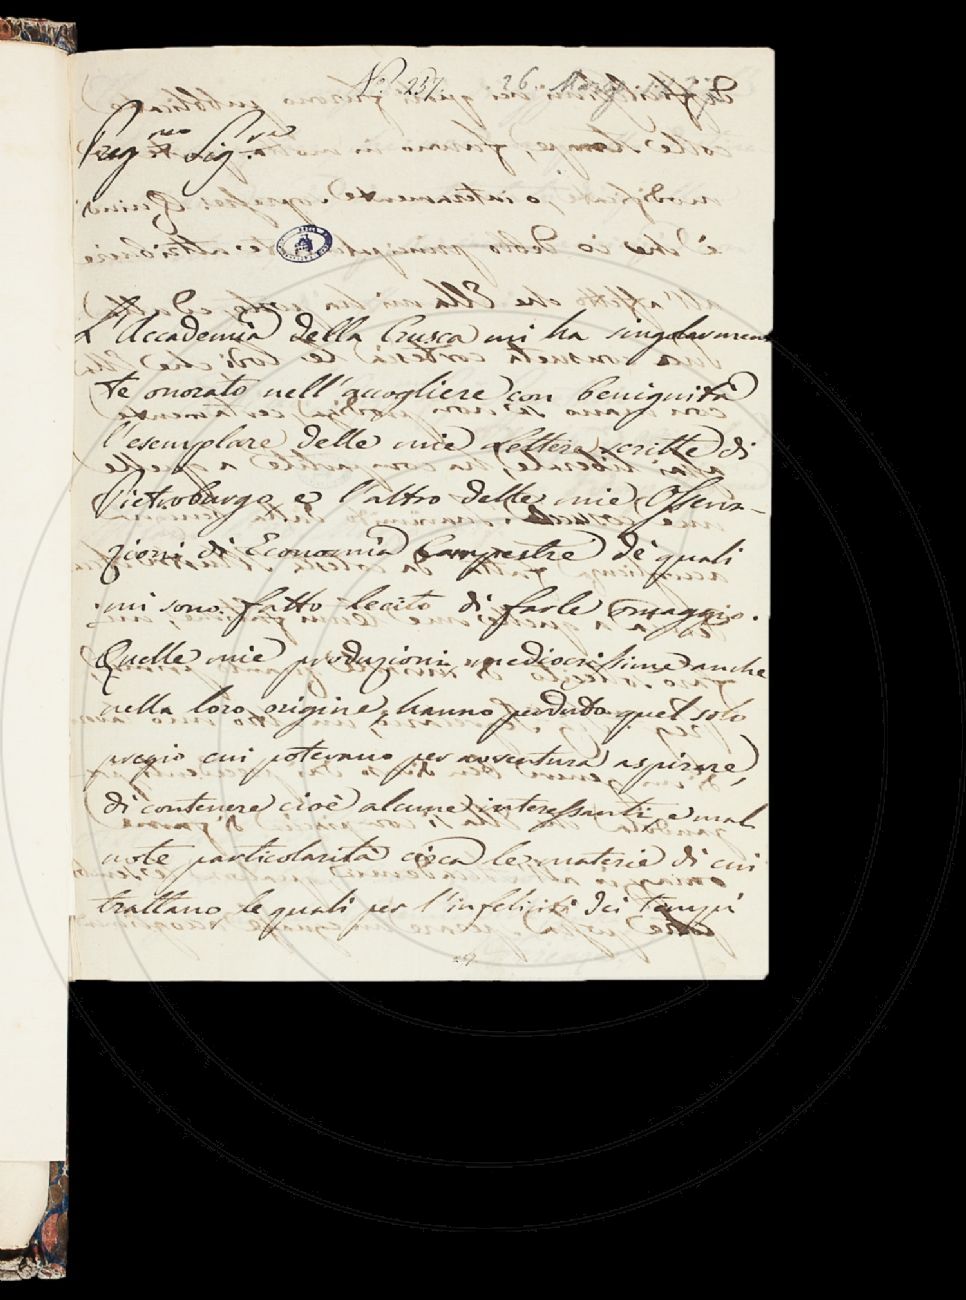 N.° 257. 26 Marzo
Preg.mo Sig.re
L'Accademia della Crusca mi ha singolarmen
te onorato nell'accogliere con benignità
l'esemplare delle mie Lettere scritte di
Pietroburgo, e l'altro delle mie Osserva-
zioni di Economia Campestre de' quali
mi sono fatto lecito di farle Omaggio.
Quelle mie produzioni mediocrissime anche
nella loro origine, hanno perduto quel solo
pregio cui potevano per avventura aspirare,
di contenere cioè alcune interessanti, e mal
note particolarità circa le materie di cui
trattano le quali per l'infelicità dei tempi
257